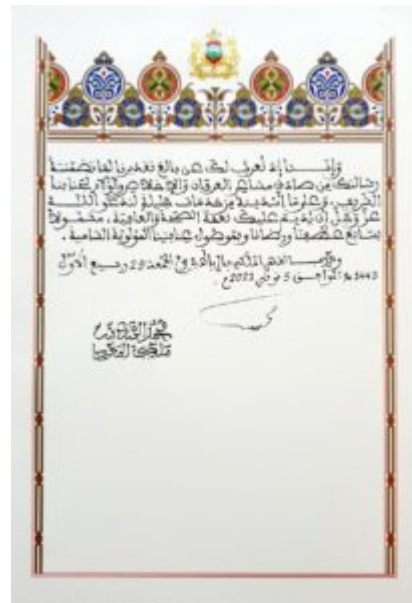 وإننا إذ نعرب لك عن بالغ تقديرنا لما تضمنته
رسالتك من صادق مشاعر العرفان والإخلاص والولاء لجنابنا
الشريف، وعلى ما أسديته من خدمات جليلة لندعو الله
عز وجل أن يديم عليك نعمة الصحة والعافية، محفوفا
بسابغ عطفنا ورضانا وبموصول عنايتنا المولوية السامية.
وحرر بالقصر الملكي بالرباط في الجمعة 29 ربيع الأول
1443 هـ الموافق 5 نونبر 2021م.
محمد السادس
ملك المغرب